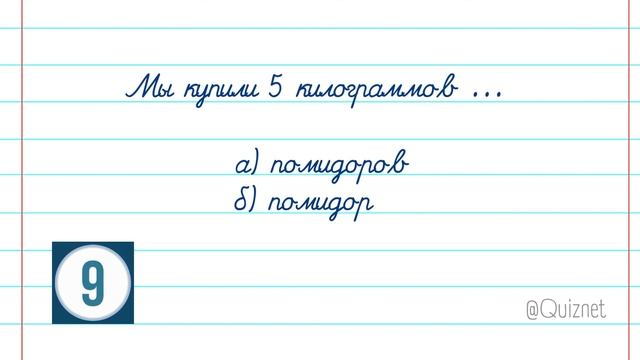 Мы купили 5 килограммов ...
а) помидоров
б) помидор
9
@Quiznet